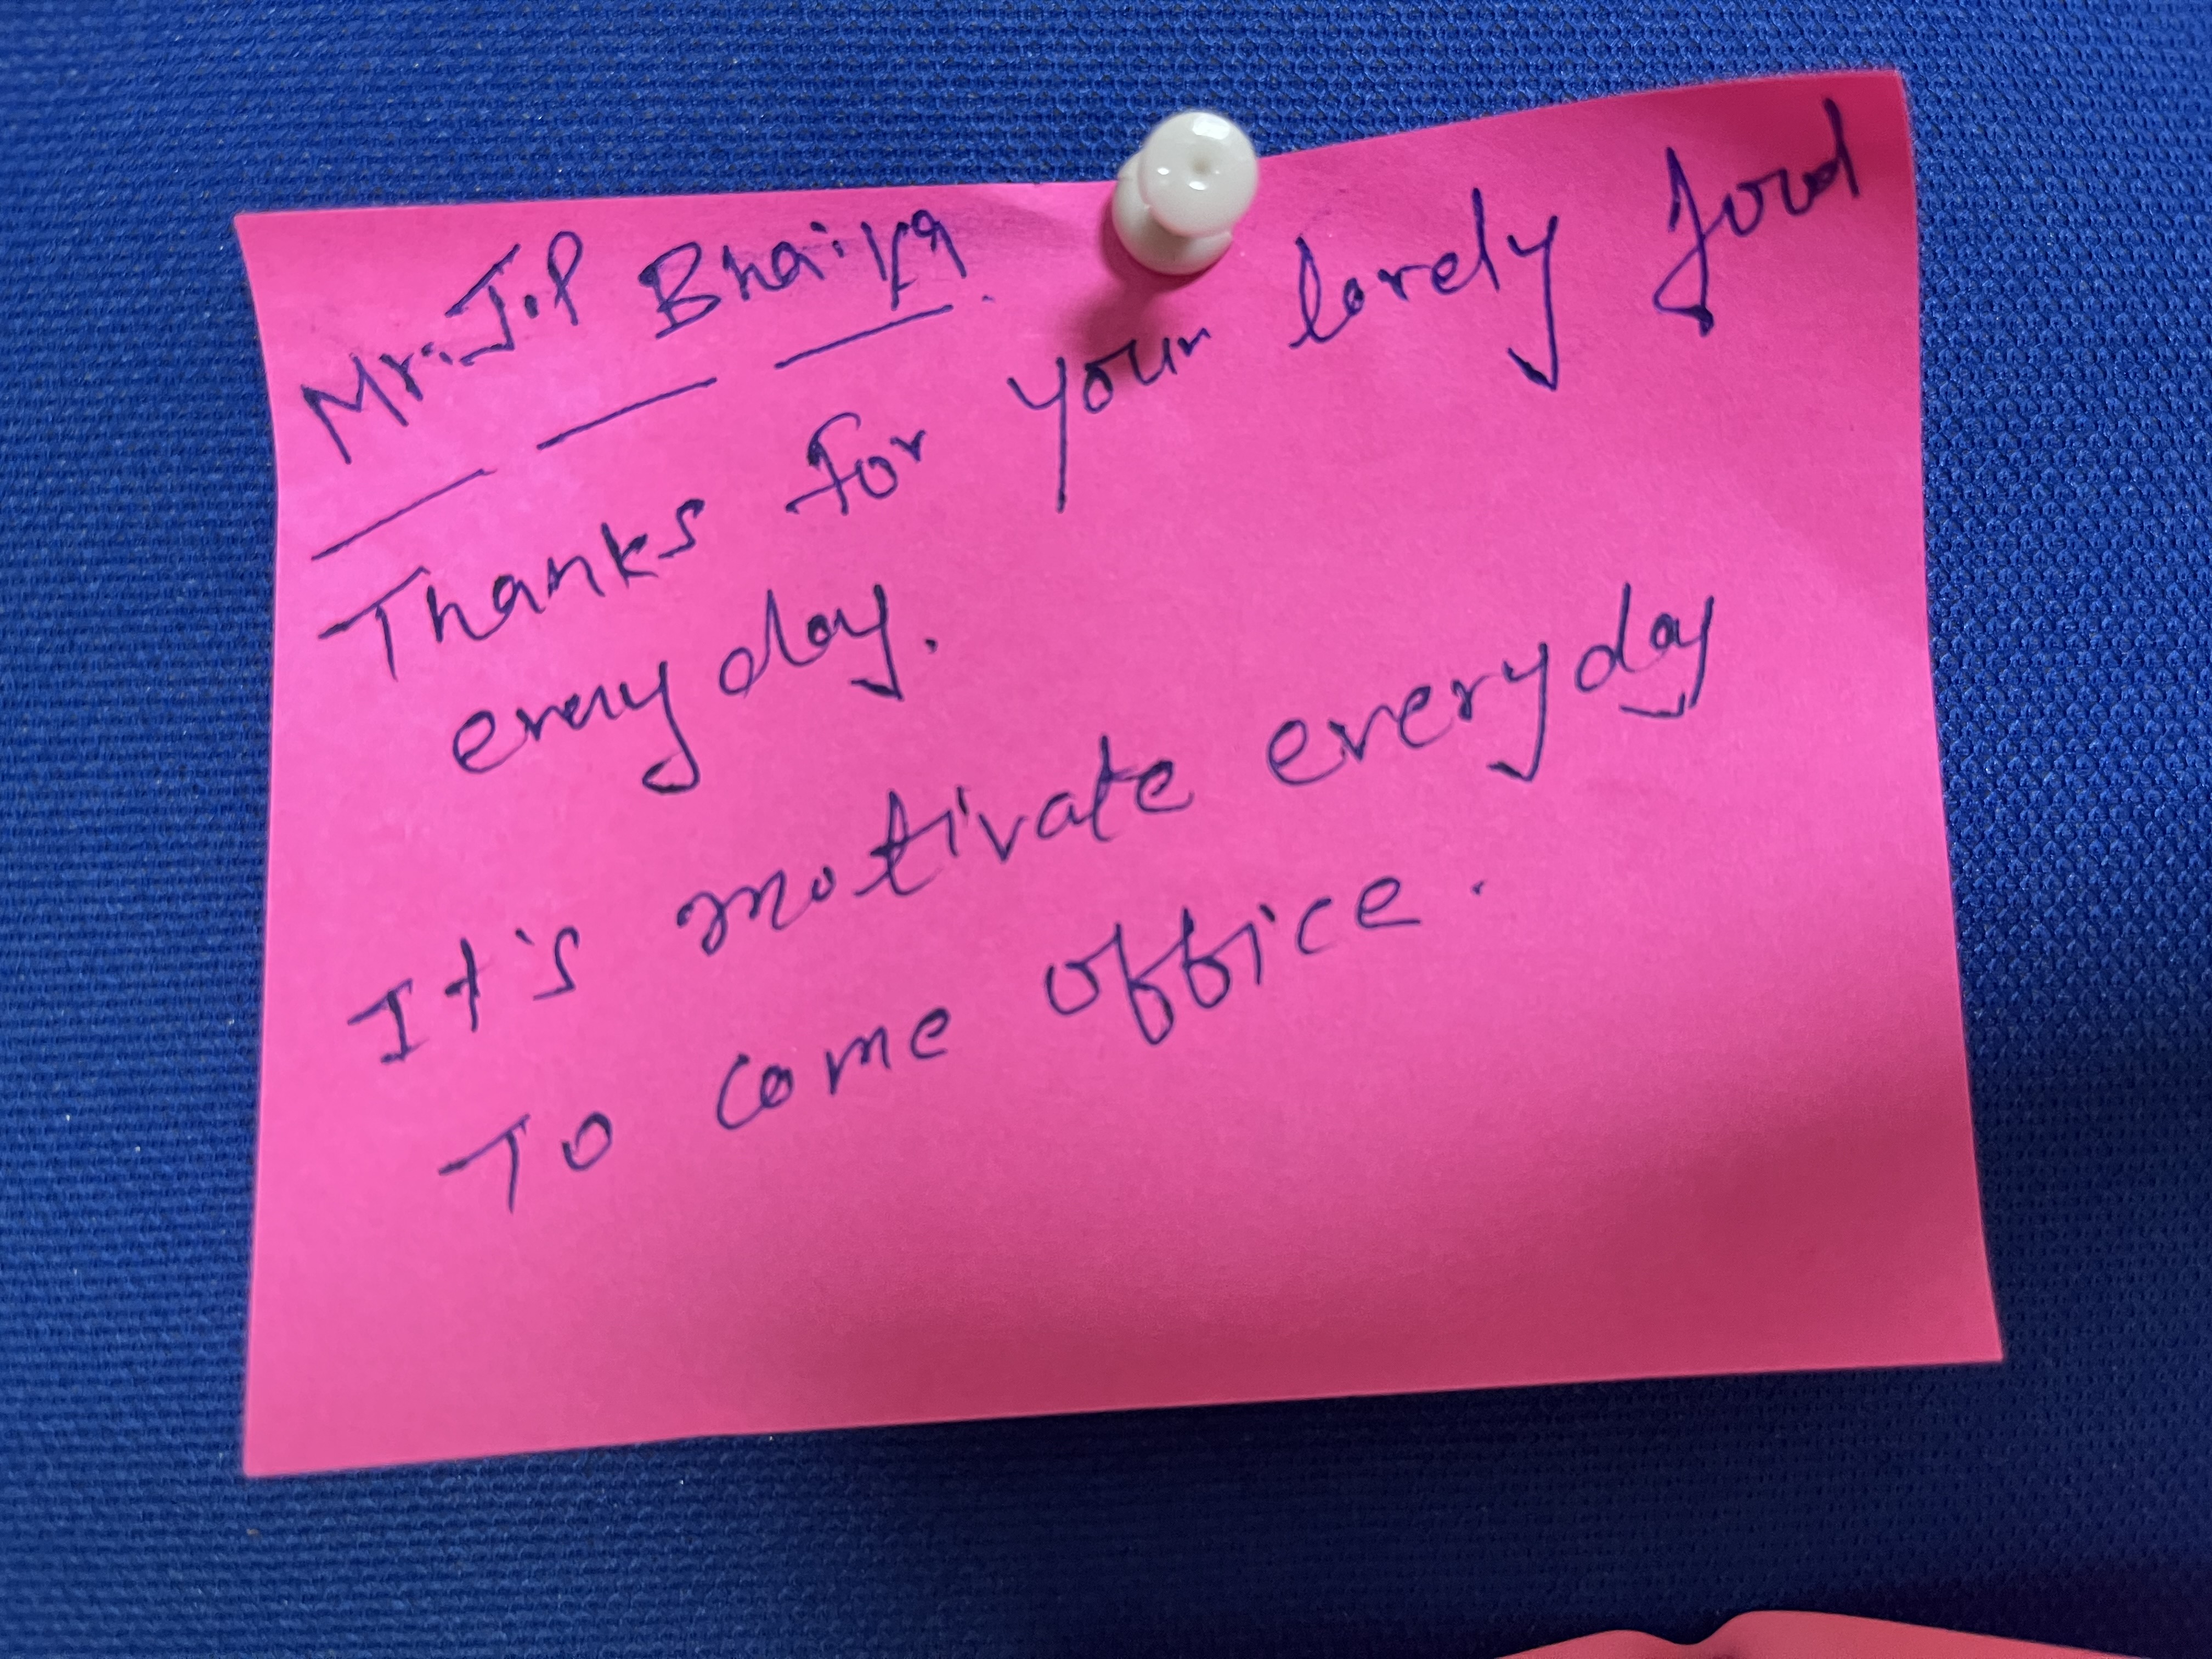 Mr. J.P Bhaiya.
Thanks for your lovely food
every day.
It's motivate everyday
To come office.